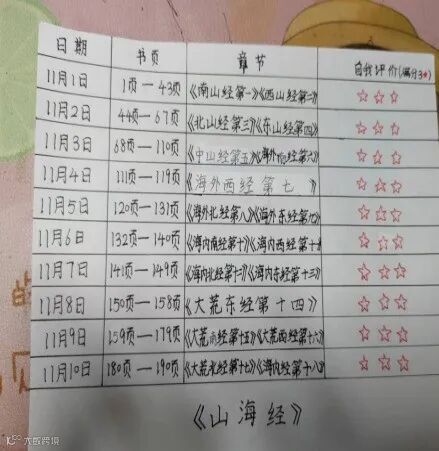 日期 书页 章节 自我评价(满分3★)
11月1日 1页—43页 《南山经第一》《西山经第二》 ☆☆☆
11月2日 44页—67页 《北山经第三》《东山经第四》 ☆☆☆
11月3日 68页—110页 《中山经第五》《海外南经第六》 ☆☆☆
11月4日 111页—119页 《海外西经第七》 ☆☆☆
11月5日 120页—131页 《海外北经第八》《海外东经第九》 ☆☆☆
11月6日 132页—140页 《海内南经第十》《海内西经第十一 ☆☆☆
11月7日 141页—149页 《海内北经第十二》《海内东经第十三》 ☆☆☆
11月8日 150页—158页 《大荒东经第十四》 ☆☆☆
11月9日 159页—179页 《大荒南经第十五》《大荒西经第十六》 ☆☆☆
11月10日 180页—190页 《大荒北经第十七》《海内经第十八》 ☆☆☆
《山海经》
大数跨境